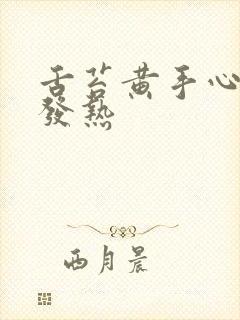 舌苔黄手心
發熱
西月晨